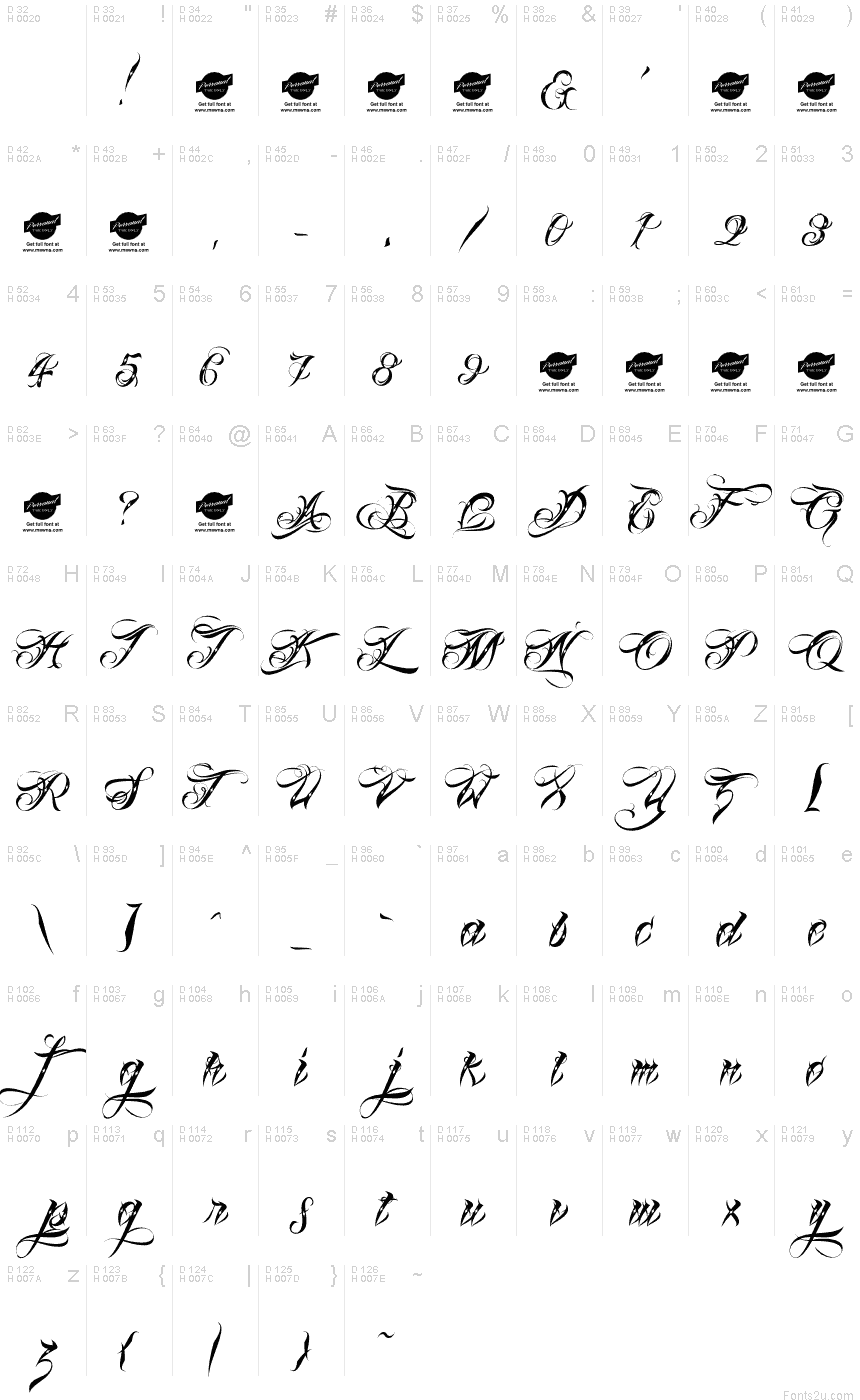 D 32 D 33 ! D 34 " D 35 # D 36 $ D 37 % D 38 & D 39 ' D 40 ( D 41 )
H 0020 H 0021 H 0022 H 0023 H 0024 H 0025 H 0026 H 0027 H 0028 H 0029
! Personal Personal Personal Personal & ' Personal Personal
USE ONLY USE ONLY USE ONLY USE ONLY USE ONLY USE ONLY
Get full font at Get full font at Get full font at Get full font at Get full font at Get full font at
www.mawns.com www.mawns.com www.mawns.com www.mawns.com www.mawns.com www.mawns.com
D 42 * D 43 + D 44 , D 45 - D 46 . D 47 / D 48 0 D 49 1 D 50 2 D 51 3
H 002A H 002B H 002C H 002D H 002E H 002F H 0030 H 0031 H 0032 H 0033
Personal Personal , - . / 0 1 2 3
USE ONLY USE ONLY
Get full font at Get full font at
www.mawns.com www.mawns.com
D 52 4 D 53 5 D 54 6 D 55 7 D 56 8 D 57 9 D 58 : D 59 ; D 60 < D 61 =
H 0034 H 0035 H 0036 H 0037 H 0038 H 0039 H 003A H 003B H 003C H 003D
4 5 6 7 8 9 Personal Personal Personal Personal
USE ONLY USE ONLY USE ONLY USE ONLY
Get full font at Get full font at Get full font at Get full font at
www.mawns.com www.mawns.com www.mawns.com www.mawns.com
D 62 > D 63 ? D 64 @ D 65 A D 66 B D 67 C D 68 D D 69 E D 70 F D 71 G
H 003E H 003F H 0040 H 0041 H 0042 H 0043 H 0044 H 0045 H 0046 H 0047
Personal ? Personal A B C D E F G
USE ONLY USE ONLY
Get full font at Get full font at
www.mawns.com www.mawns.com
D 72 H D 73 I D 74 J D 75 K D 76 L D 77 M D 78 N D 79 O D 80 P D 81 Q
H 0048 H 0049 H 004A H 004B H 004C H 004D H 004E H 004F H 0050 H 0051
H I J K L M N O P Q
D 82 R D 83 S D 84 T D 85 U D 86 V D 87 W D 88 X D 89 Y D 90 Z D 91 [
H 0052 H 0053 H 0054 H 0055 H 0056 H 0057 H 0058 H 0059 H 005A H 005B
R S T U V W X Y Z [
D 92 \ D 93 ] D 94 ^ D 95 _ D 96 ` D 97 a D 98 b D 99 c D 100 d D 101 e
H 005C H 005D H 005E H 005F H 0060 H 0061 H 0062 H 0063 H 0064 H 0065
\ ] ^ _ ` a b c d e
D 102 f D 103 g D 104 h D 105 i D 106 j D 107 k D 108 l D 109 m D 110 n D 111 o
H 0066 H 0067 H 0068 H 0069 H 006A H 006B H 006C H 006D H 006E H 006F
f g h i j k l m n o
D 112 p D 113 q D 114 r D 115 s D 116 t D 117 u D 118 v D 119 w D 120 x D 121 y
H 0070 H 0071 H 0072 H 0073 H 0074 H 0075 H 0076 H 0077 H 0078 H 0079
p q r s t u v w x y
D 122 z D 123 { D 124 | D 125 } D 126 ~
H 007A H 007B H 007C H 007D H 007E
z { | } ~
Fonts2u.com